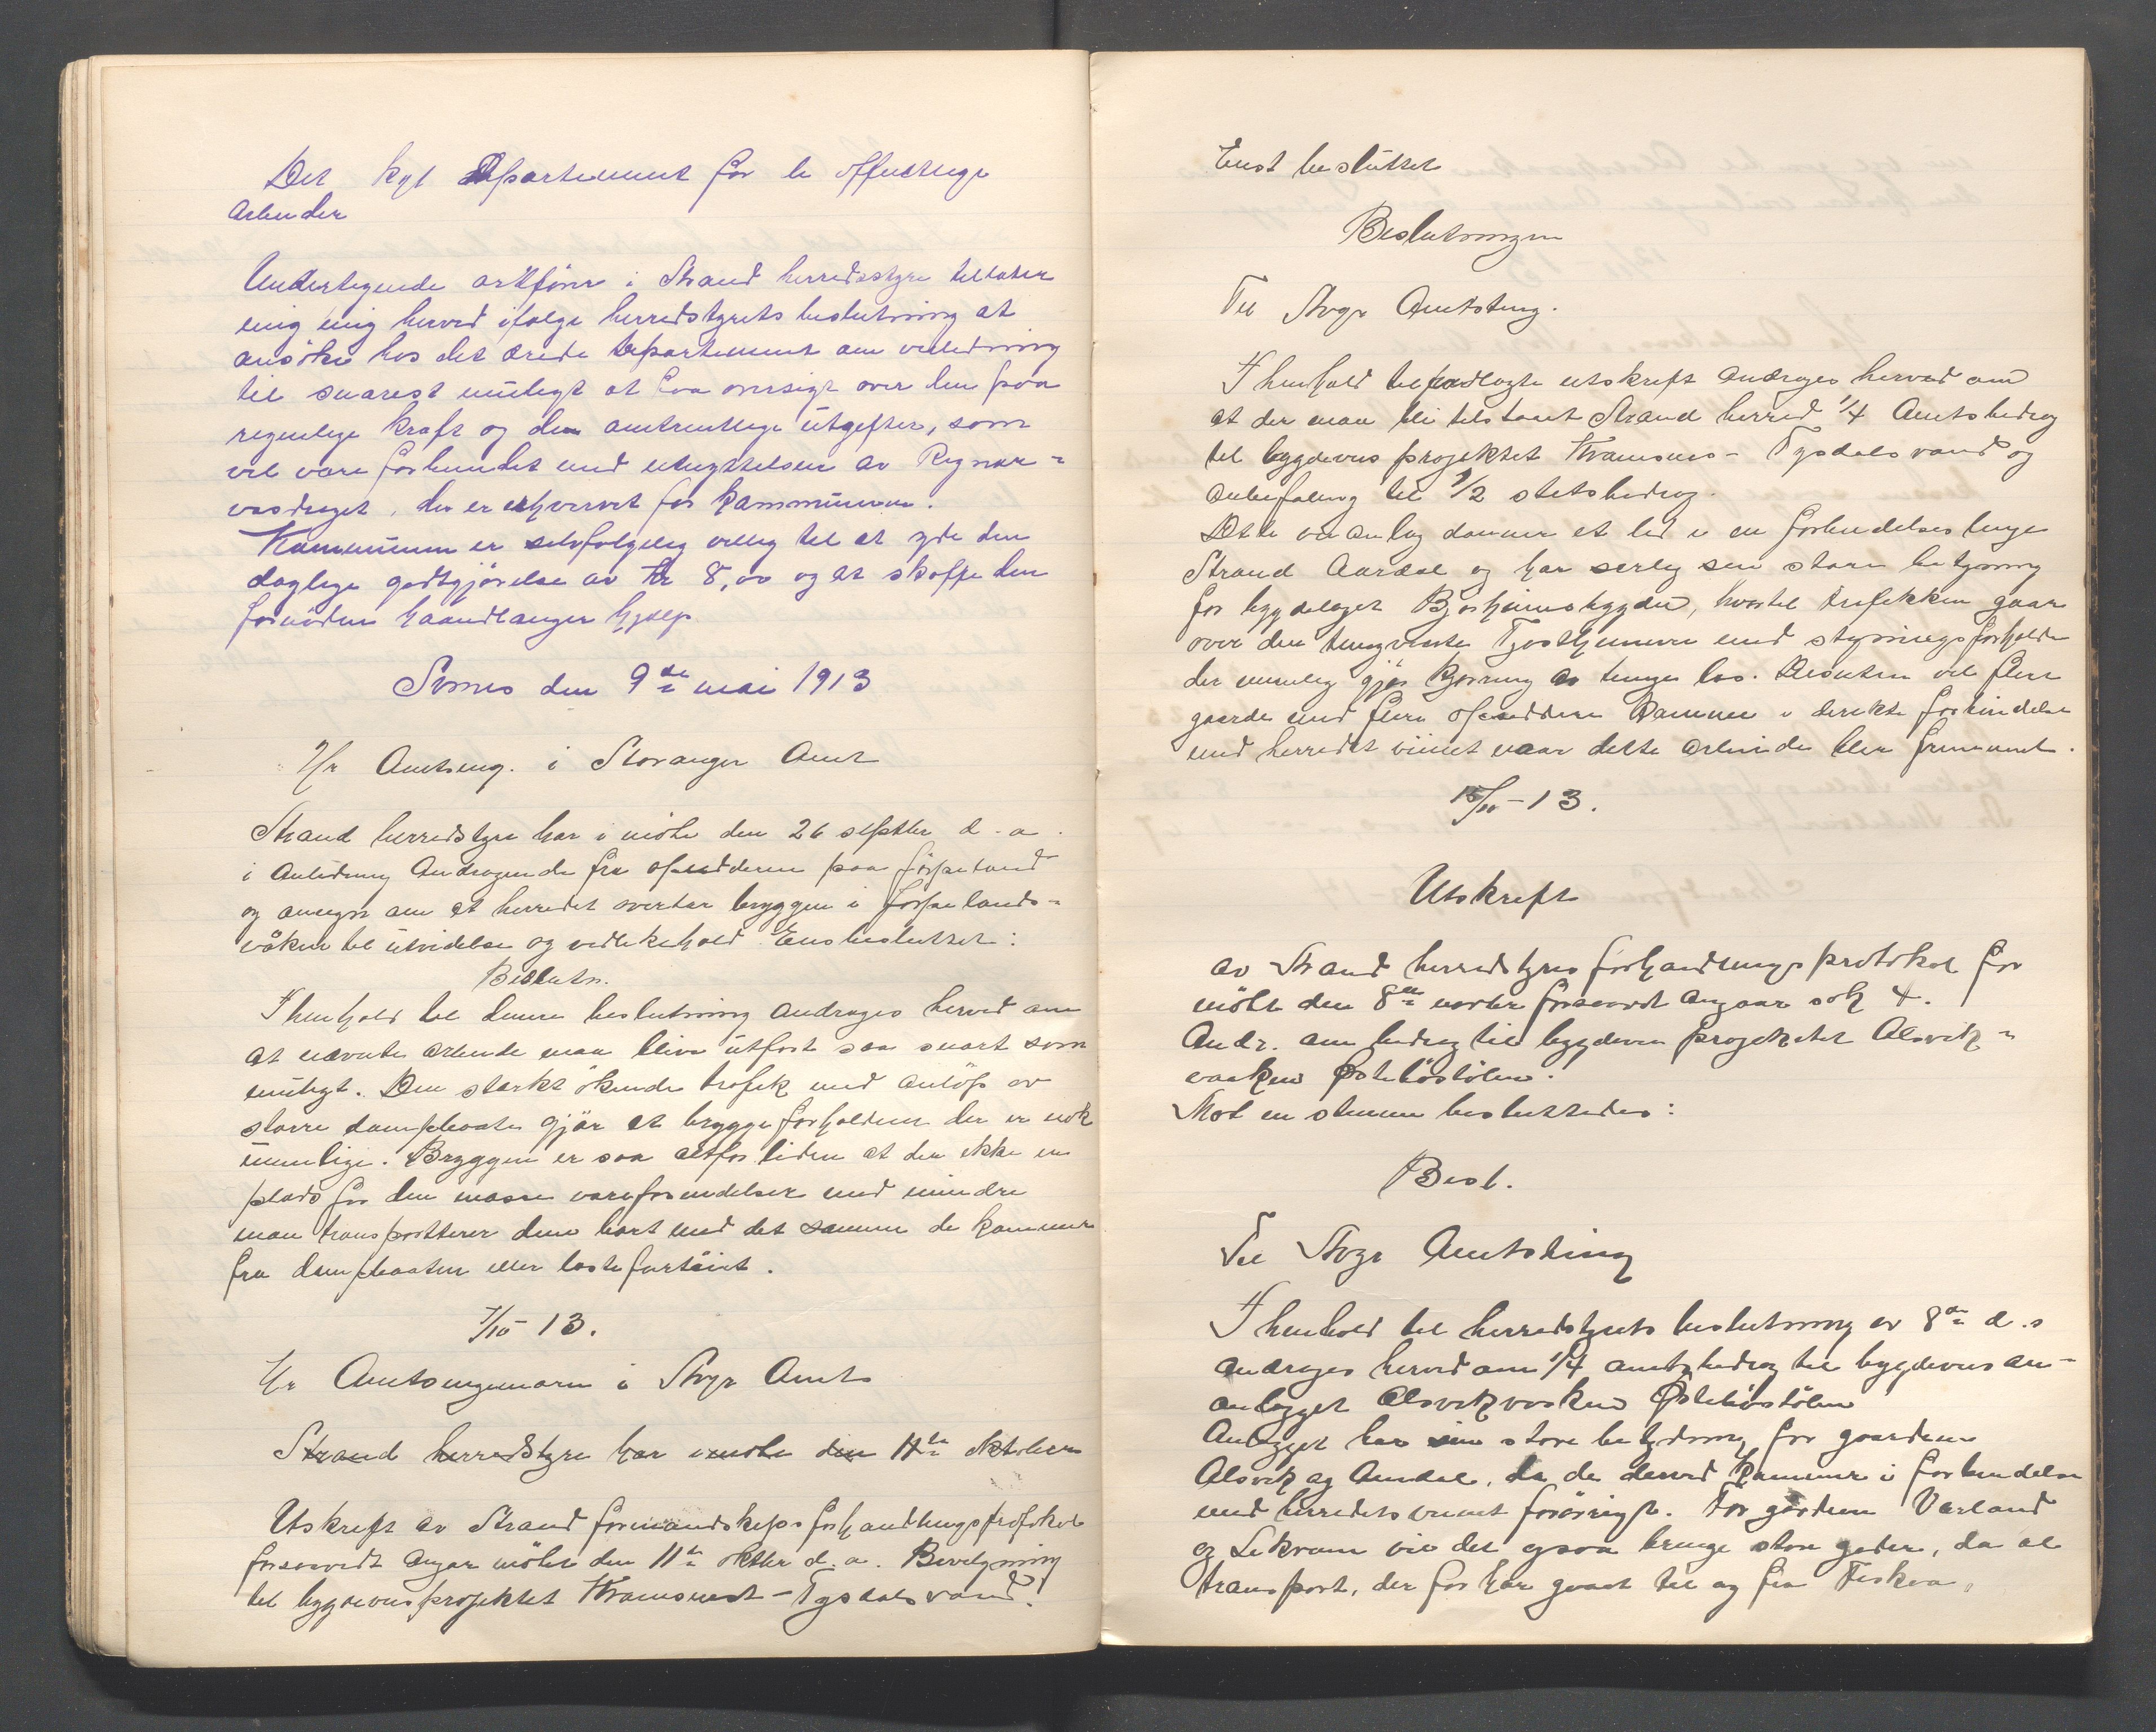 Det kgl Departement for de offentlige
Arbeider
Undertegnede ordfører i Strand herredsstyre tillater
mig herved ifølge herredstyrets beslutning at
ansøke hos det ærede Departement om veiledning
til snarest muligt at faa oversigt over den paa
regnelige kraft og den omtrentlige utgifter, som
vil være forbundet med utnyttelsen av
vasdraget, der er erhvervet for kommunen.
Kommunen er selvfølgelig villig til at yde den
daglige godtgjørelse av kr 8,00 og at skaffe den
fornødne haandlanger hjælp
den 9de mai 1913
Hr Amtsing. i Stavanger Amt
Strand herredstyre har i møte den 26 septbr d.a.
i Anledning Andragende fra opsidderne paa Jørpeland
og omegn om at herredet overtar bryggen i Jørpelands-
vågen til utvidelse og vedlikehold Enst besluttet:
Beslutn.
I henhold til denne beslutning andrages herved om
at nævnte arbeide maa blive utført saa snart som
muligt. Den sterkt økende trafik med anløp av
større dampbaate gjør at bryggeforholdene der er nok
umulige. Bryggen er saa altfor liden at der ikke er
plads for den masse vareforsendelser med mindre
man transportterer dem bort med det samme de kommer
fra dampbaaten eller lastefartøiet.
7/10 13.
Hr Amtsingeniøren i Stvgr Amt
Strand herredstyre har i møte den 11te oktober
Utskrift av Strand formandskaps forhandlingsprotokol
forsaavidt angar møtet den 11te oktbr d.a. Bevilgning
til bygdeveisprojektet Tysdalsvand.
Enst besluttet
Beslutningen
Til Stvgr Amtsting.
I henhold til vedlagte utskrift andrages herved om
at der maa bli tilstaaet Strand herred 1/4 Amtsbidrag
til bygdeveis projektet - Tysdalsvand og
anbefaling til 1/2 statsbidrag.
Dette veianlæg danner et led i en forbindelses linje
Strand Aardal og har særlig sin store betydning
for bygdelaget Bjørheimsbygden, hvortil trafikken gaar
over den med stigningsforholde
der umulig gjør kjørring av tunge las. Desuten vil flere
gaarde med flere opsiddere komme i direkte forbindelse
med herredet veinet naar dette arbeide blir fremmet.
15/10-13.
Utskrift
av Strand herredstyres forhandlingsprotokol for
møte den 8de novbr forsaavidt angaar sak 4.
Andr. om bidrag til bygdeveis projektet Alsvik-
vaagen Østebøstølen.
Mot en stemme besluttedes:
Besl.
Til Stvgr Amtsting
I henhold til herredstyrets beslutning av 8de d.s
andrages herved om 1/4 amtsbidrag til bygdeveis an-
anlægget Alsvikvaagen Østebøstølen
Anlægget har sin store betydning for gaardene
Alsvik og Amdal, da de derved kommer i forbindelse
med herredets veinet forøvrigt. For gårdene Varland
og Lekvam vil det ogsaa bringe store goder, da al
transport, der før har gaaet til og fra Fiskaa,